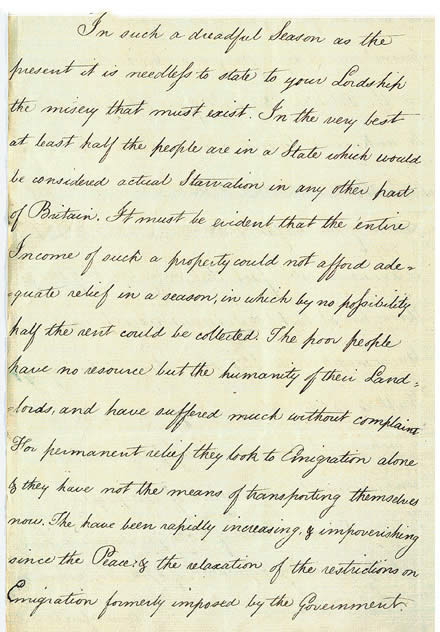 In such a dreadful Season as the
present it is needless to state to your Lordship
the misery that must exist. In the very best
at least half the people are in a State which would
be considered actual Starvation in any other part
of Britain. It must be evident that the entire
Income of such a property could not afford ade=
=quate relief in a season, in which by no possibility
half the rent could be collected. The poor people
have no resource but the humanity of their Land=
=lords, and have suffered much without complaint
For permanent relief they look to Emigration alone
& they have not the means of transporting themselves
now. The have been rapidly increasing, & impoverishing
since the Peace: & the relaxation of the restrictions on
Emigration formerly imposed by the Government.